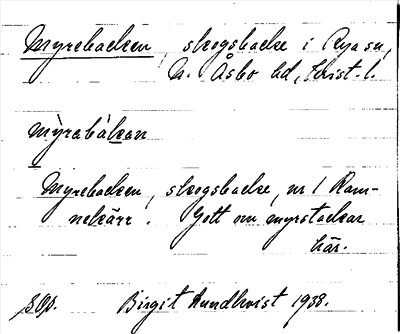 Myrebacken, skogsbacke i Rya sn,
N. Åsbo hd, Krist. l.
mỳrabàkan
Myrebacken, skogsbacke, nr 1 Ram-
nekärr. Gott om myrstackar
här.
sOp. Birgit Lundkvist 1938.